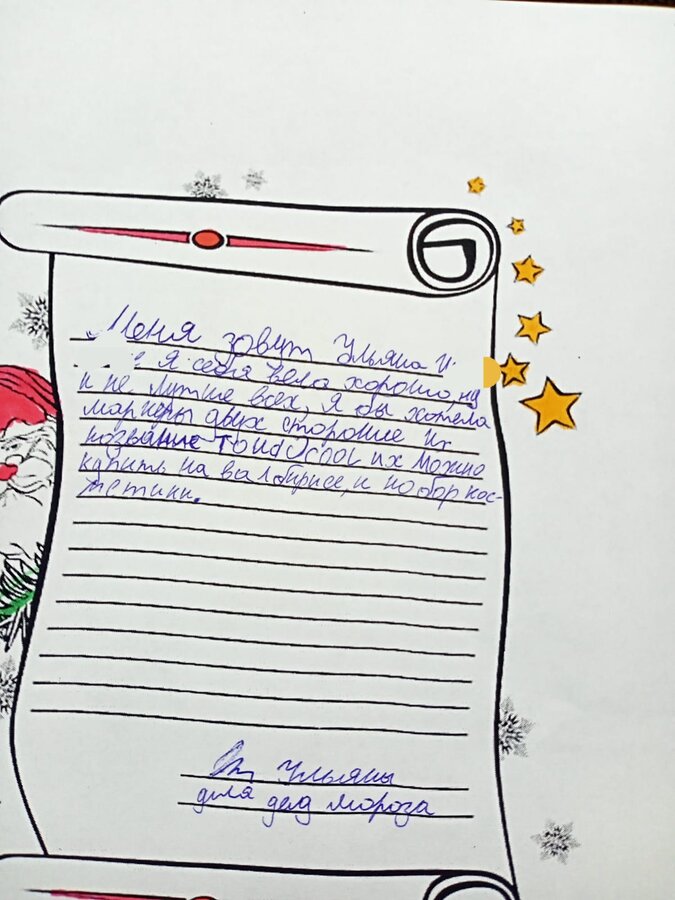 Меня зовут Ульяна И.
Я себя вела хорошо, ну
и не лутше всех, я бы хотела
маркеры двух стороние их
название TOUCHCOOL их можно
купить на валбирисе, и нобор кос-
метики.
От Ульяны
для дед мороза